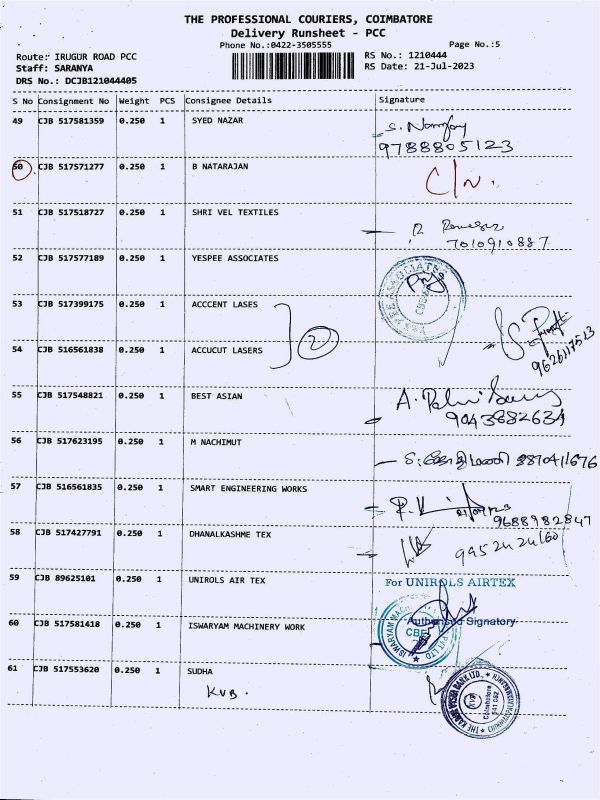 THE PROFESSIONAL COURIERS, COIMBATORE
Delivery Runsheet - PCC
Phone No.:0422-3505555
Page No.:5
Route: IRUGUR ROAD PCC
Staff: SARANYA
DRS No.: DCJB121044405
RS No.: 1210444
RS Date: 21-Jul-2023
S No Consignment No Weight PCS Consignee Details Signature
49 CJB 517581359 0.250 1 SYED NAZAR
9788805123
50 CJB 517571277 0.250 1 B NATARAJAN C/N.
51 CJB 517518727 0.250 1 SHRI VEL TEXTILES
7010910887
52 CJB 517577189 0.250 1 YESPEE ASSOCIATES
53 CJB 517399175 0.250 1 ACCCENT LASES
2
54 CJB 516561838 0.250 1 ACCUCUT LASERS
9626117513
55 CJB 517548821 0.250 1 BEST ASIAN
9043882634
56 CJB 517623195 0.250 1 M NACHIMUT
8870411676
57 CJB 516561835 0.250 1 SMART ENGINEERING WORKS
9688982847
58 CJB 517427791 0.250 1 DHANALKASHME TEX
9952424160
59 CJB 89625101 0.250 1 UNIROLS AIR TEX For UNIROLS AIRTEX
60 CJB 517581418 0.250 1 ISWARYAM MACHINERY WORK Authorised Signatory
61 CJB 517553620 0.250 1 SUDHA
KVB.